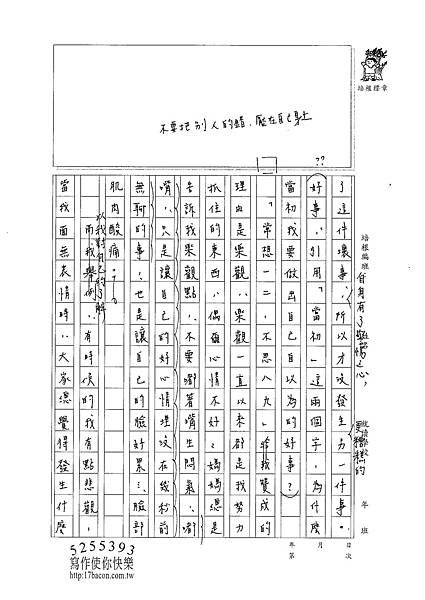 不要把別人的錯，壓在自己身上
培根標章
培根編班
年 班
年 月 日
第 次
自身有了警惕之心，
更糟糕的
了這件壞事，所以才改生另一件事。
好事，引用「當初」這兩個字，為什麼
當初我要做出自己自以為的好事？
「常想一二，不思八九」我贊成的
理由是樂觀，樂觀一直以來都是我努力
抓住的東西，偶爾心情不好，媽媽總是
告訴我樂觀點，不要嘟著嘴生悶氣，嘟
嘴，只是讓自己的好心情埋在幾秒前
無聊的事，也是讓自己的臉好累，臉部
肌肉酸痛。
以我對自己的了解，
而我舉例，有時候的我有點悲觀，
當我面無表情時，大家總覺得發生什麼
??
5255393
寫作使你快樂
http://17bacon.com.tw